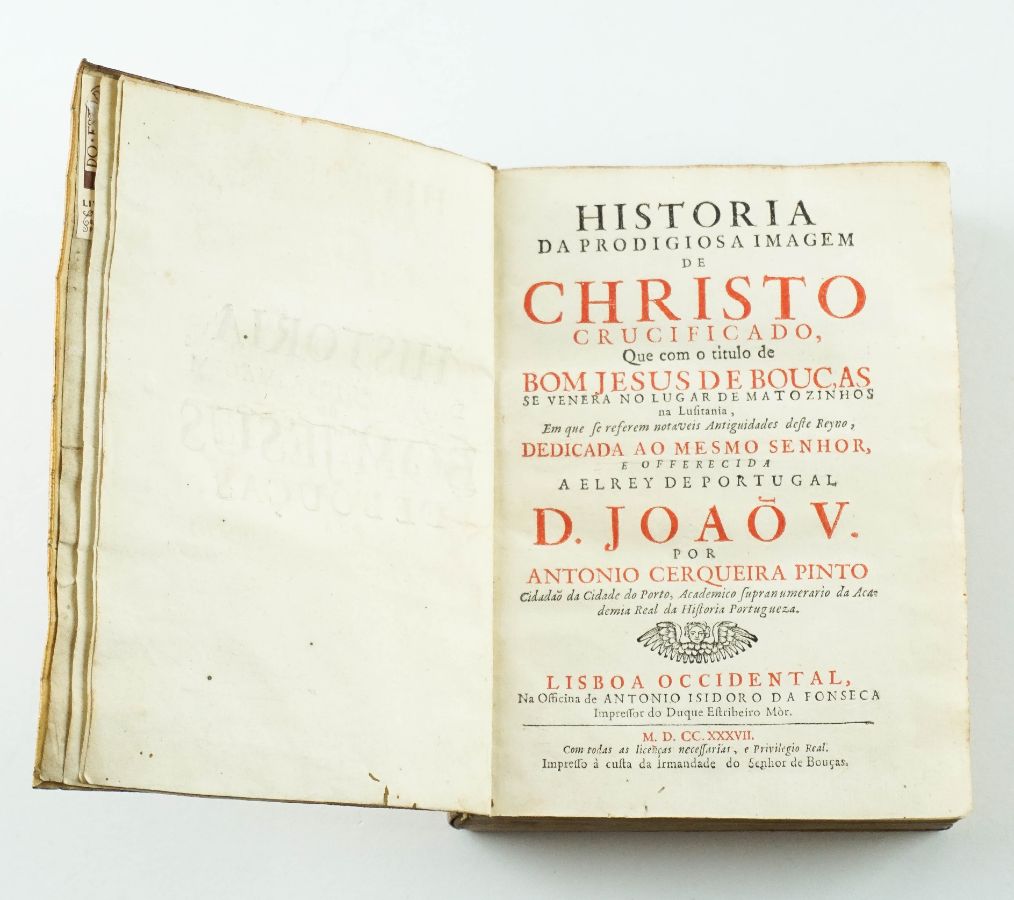 HISTORIA
DA PRODIGIOSA IMAGEM
DE
CHRISTO
CRUCIFICADO,
Que com o titulo de
BOM JESUS DE BOUC,AS
SE VENERA NO LUGAR DE MATOZINHOS
na Luſitania,
Em que ſe referem notaveis Antiguidades deſte Reyno,
DEDICADA AO MESMO SENHOR,
E OFFERECIDA
A ELREY DE PORTUGAL
D. JOAÕ V.
POR
ANTONIO CERQUEIRA PINTO
Cidadaõ da Cidade do Porto, Academico ſupranumerario da Aca-
demia Real da Hiſtoria Portugueza.
LISBOA OCCIDENTAL,
Na Officina de ANTONIO ISIDORO DA FONSECA
Impreſſor do Duque Eſtribeiro Mòr.
M. D. CC. XXXVII.
Com todas as licenças neceſſarias, e Privilegio Real.
Impreſſo à cuſta da Irmandade do Senhor de Bouças.